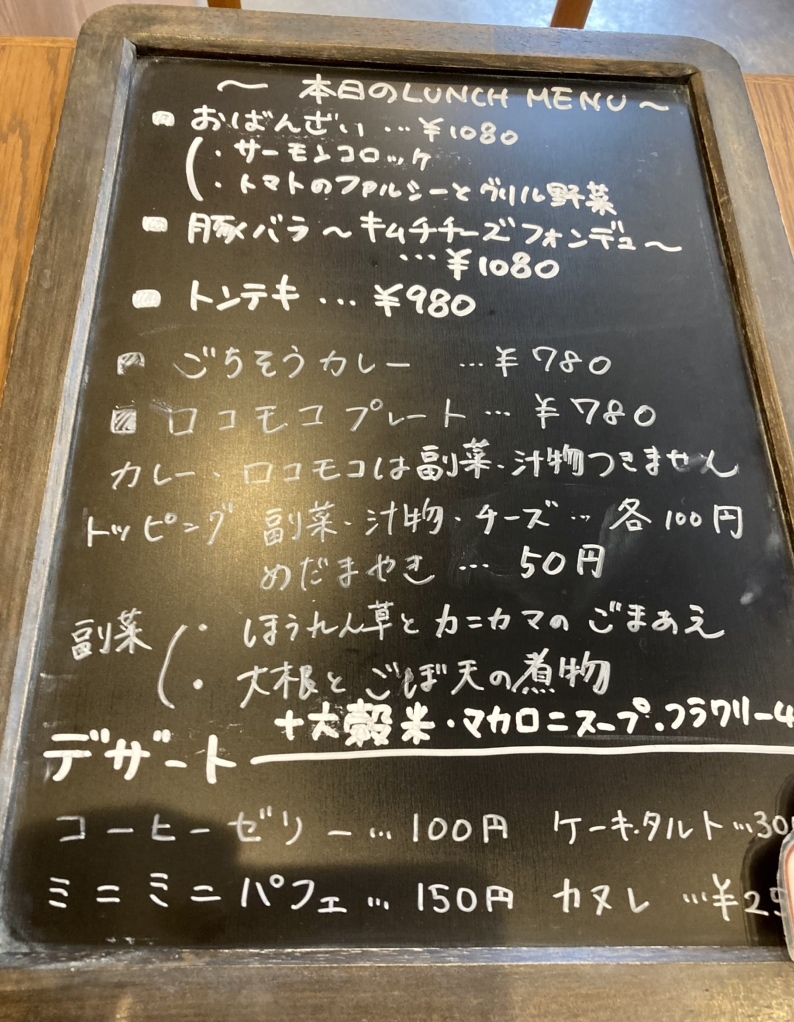 ～ 本日のLUNCH MENU ～
おばんざい…¥1080
・サーモンコロッケ
・トマトのファルシーとグリル野菜
豚バラ～キムチチーズフォンデュ～
…¥1080
トンテキ…¥980
ごちそうカレー …¥780
ロコモコプレート…¥780
カレー・ロコモコは副菜・汁物つきません
トッピング 副菜・汁物・チーズ…各100円
めだまやき … 50円
副菜 ・ほうれん草とカニカマのごまあえ
・大根とごぼ天の煮物
＋六穀米・マカロニスープ・フラワリー
デザート
コーヒーゼリー…100円 ケーキ・タルト…30
ミニミニパフェ…150円 カヌレ …¥25